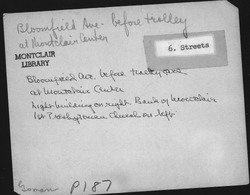 Bloomfield Ave. before trolley
at Montclair Center
6. Streets
MONTCLAIR
LIBRARY
Bloomfield Ave. before trolley
at Montclair Center
Light building on right Bank of Montclair
1st Presbyterian Church on left.
P187